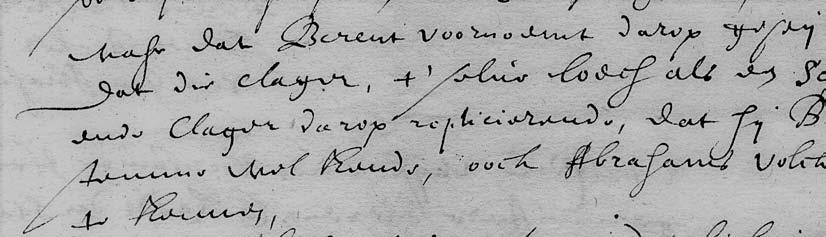 Mahr dat Berent voornoemt darop gesey
dat die clager, t' selve loech als en Sc
ende Clager darop replicierende, dat hij B
temme wel kende, ooch Abrahams volck
te kennen,